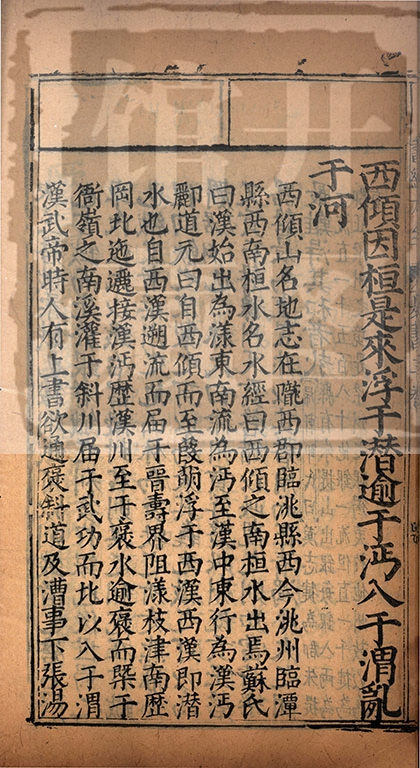 西傾因桓是來浮于潛逾于沔入于渭亂
于河
西傾山名地志在隴西郡臨洮縣西今洮州臨潭
縣西南桓水名水經曰西傾之南桓水出焉蘇氏
曰漢始出為漾東南流為沔至漢中東行為漢沔
酈道元曰自西傾而至葭萌浮于西漢西漢即潛
水也自西漢遡流而屆于晉壽界阻漾枝津南歷
岡北迤邐接漢沔歷漢川至于褒水逾褒而曁于
衙嶺之南溪灌于斜川屆于武功而北以入于渭
漢武帝時人有上書欲通褒斜道及漕事下張湯